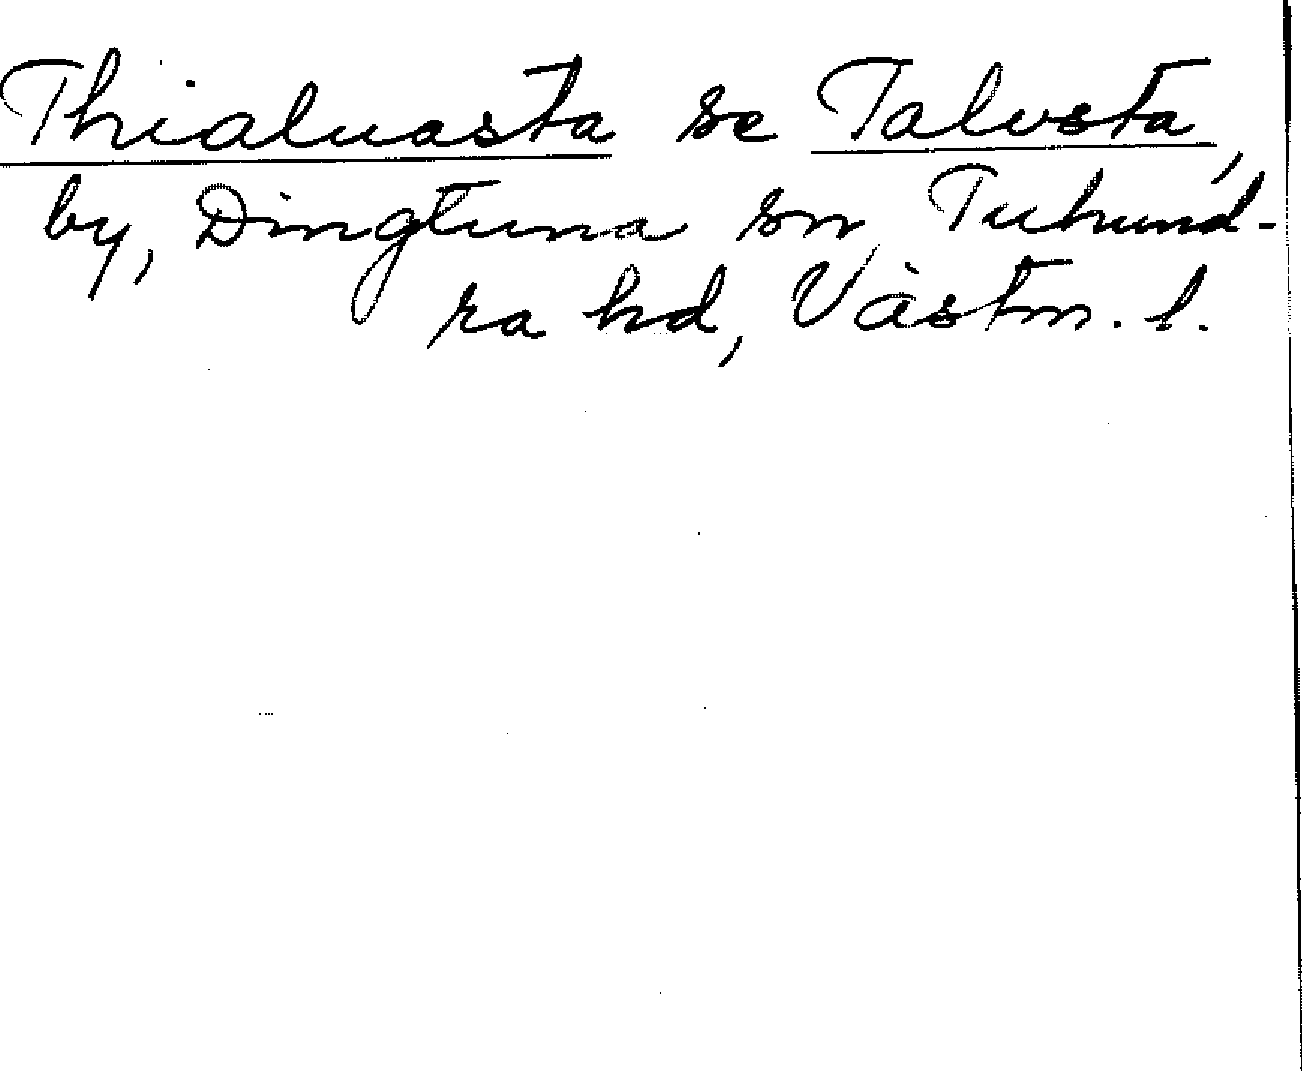 Thialuasta se Talvsta,
by, Dingtuna sn Tuhund-
ra hd, Västm. l.